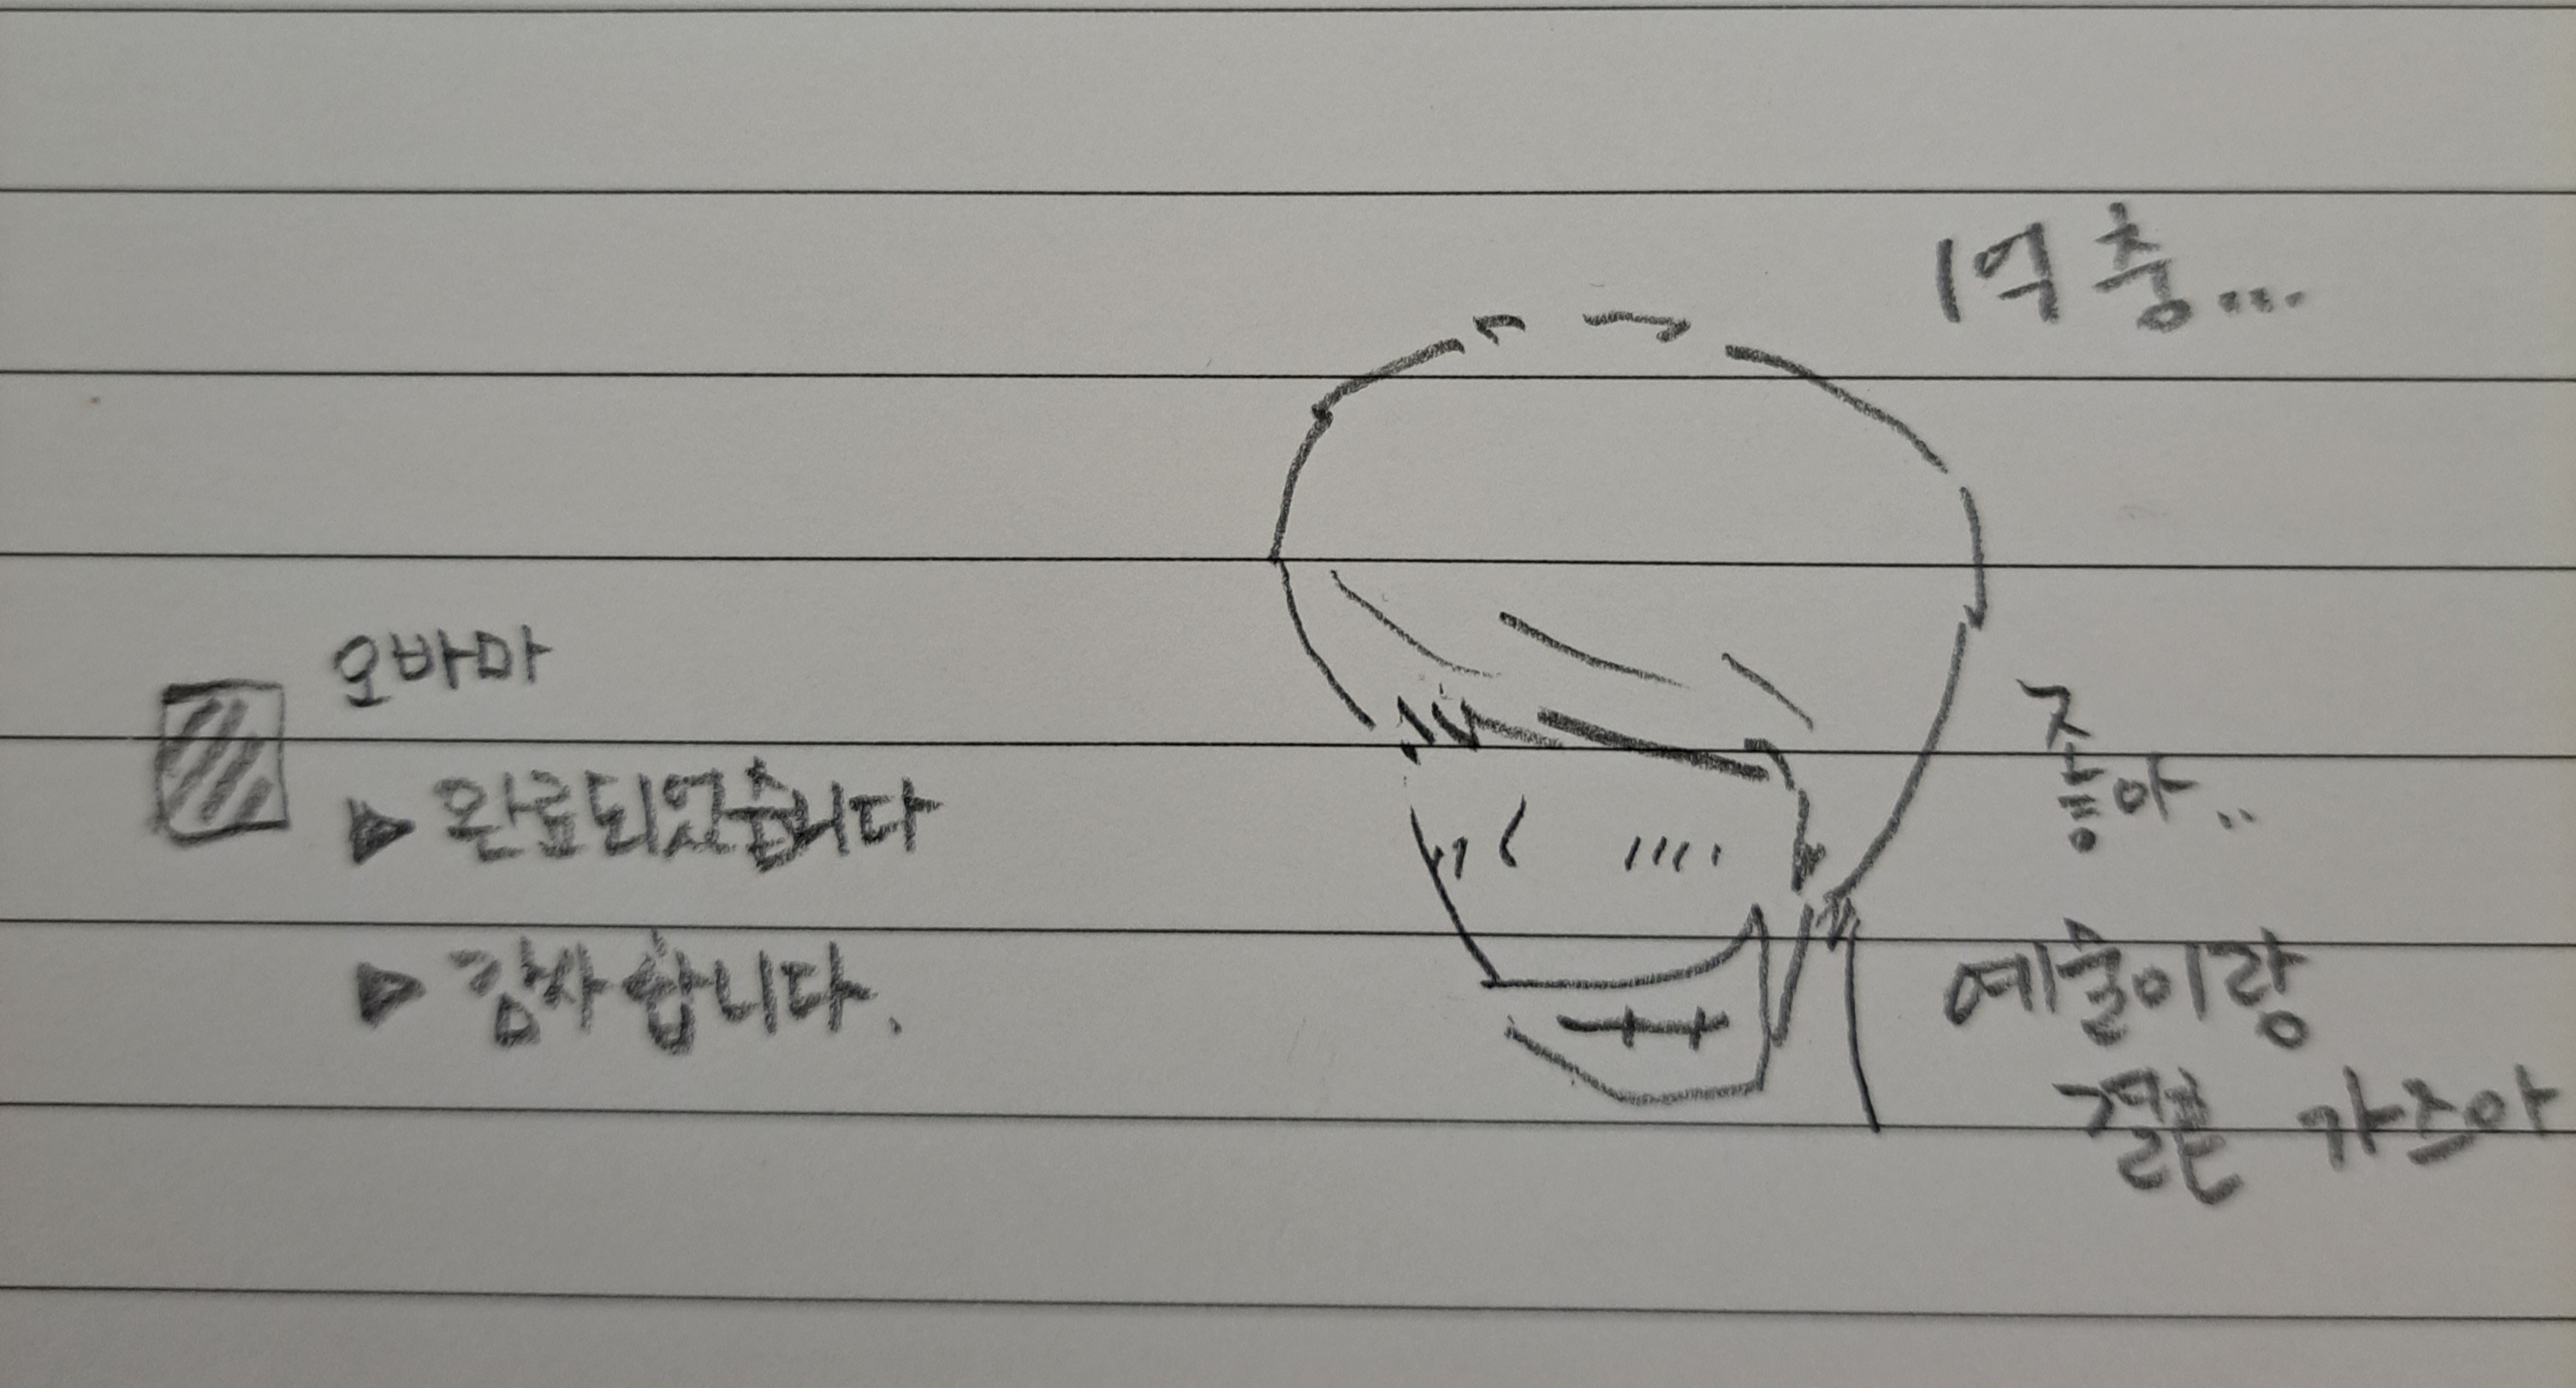 오바마
▶ 완료되었습니다
▶ 감사합니다.
1억 충...
좋아..
예술이랑
결혼 가즈아